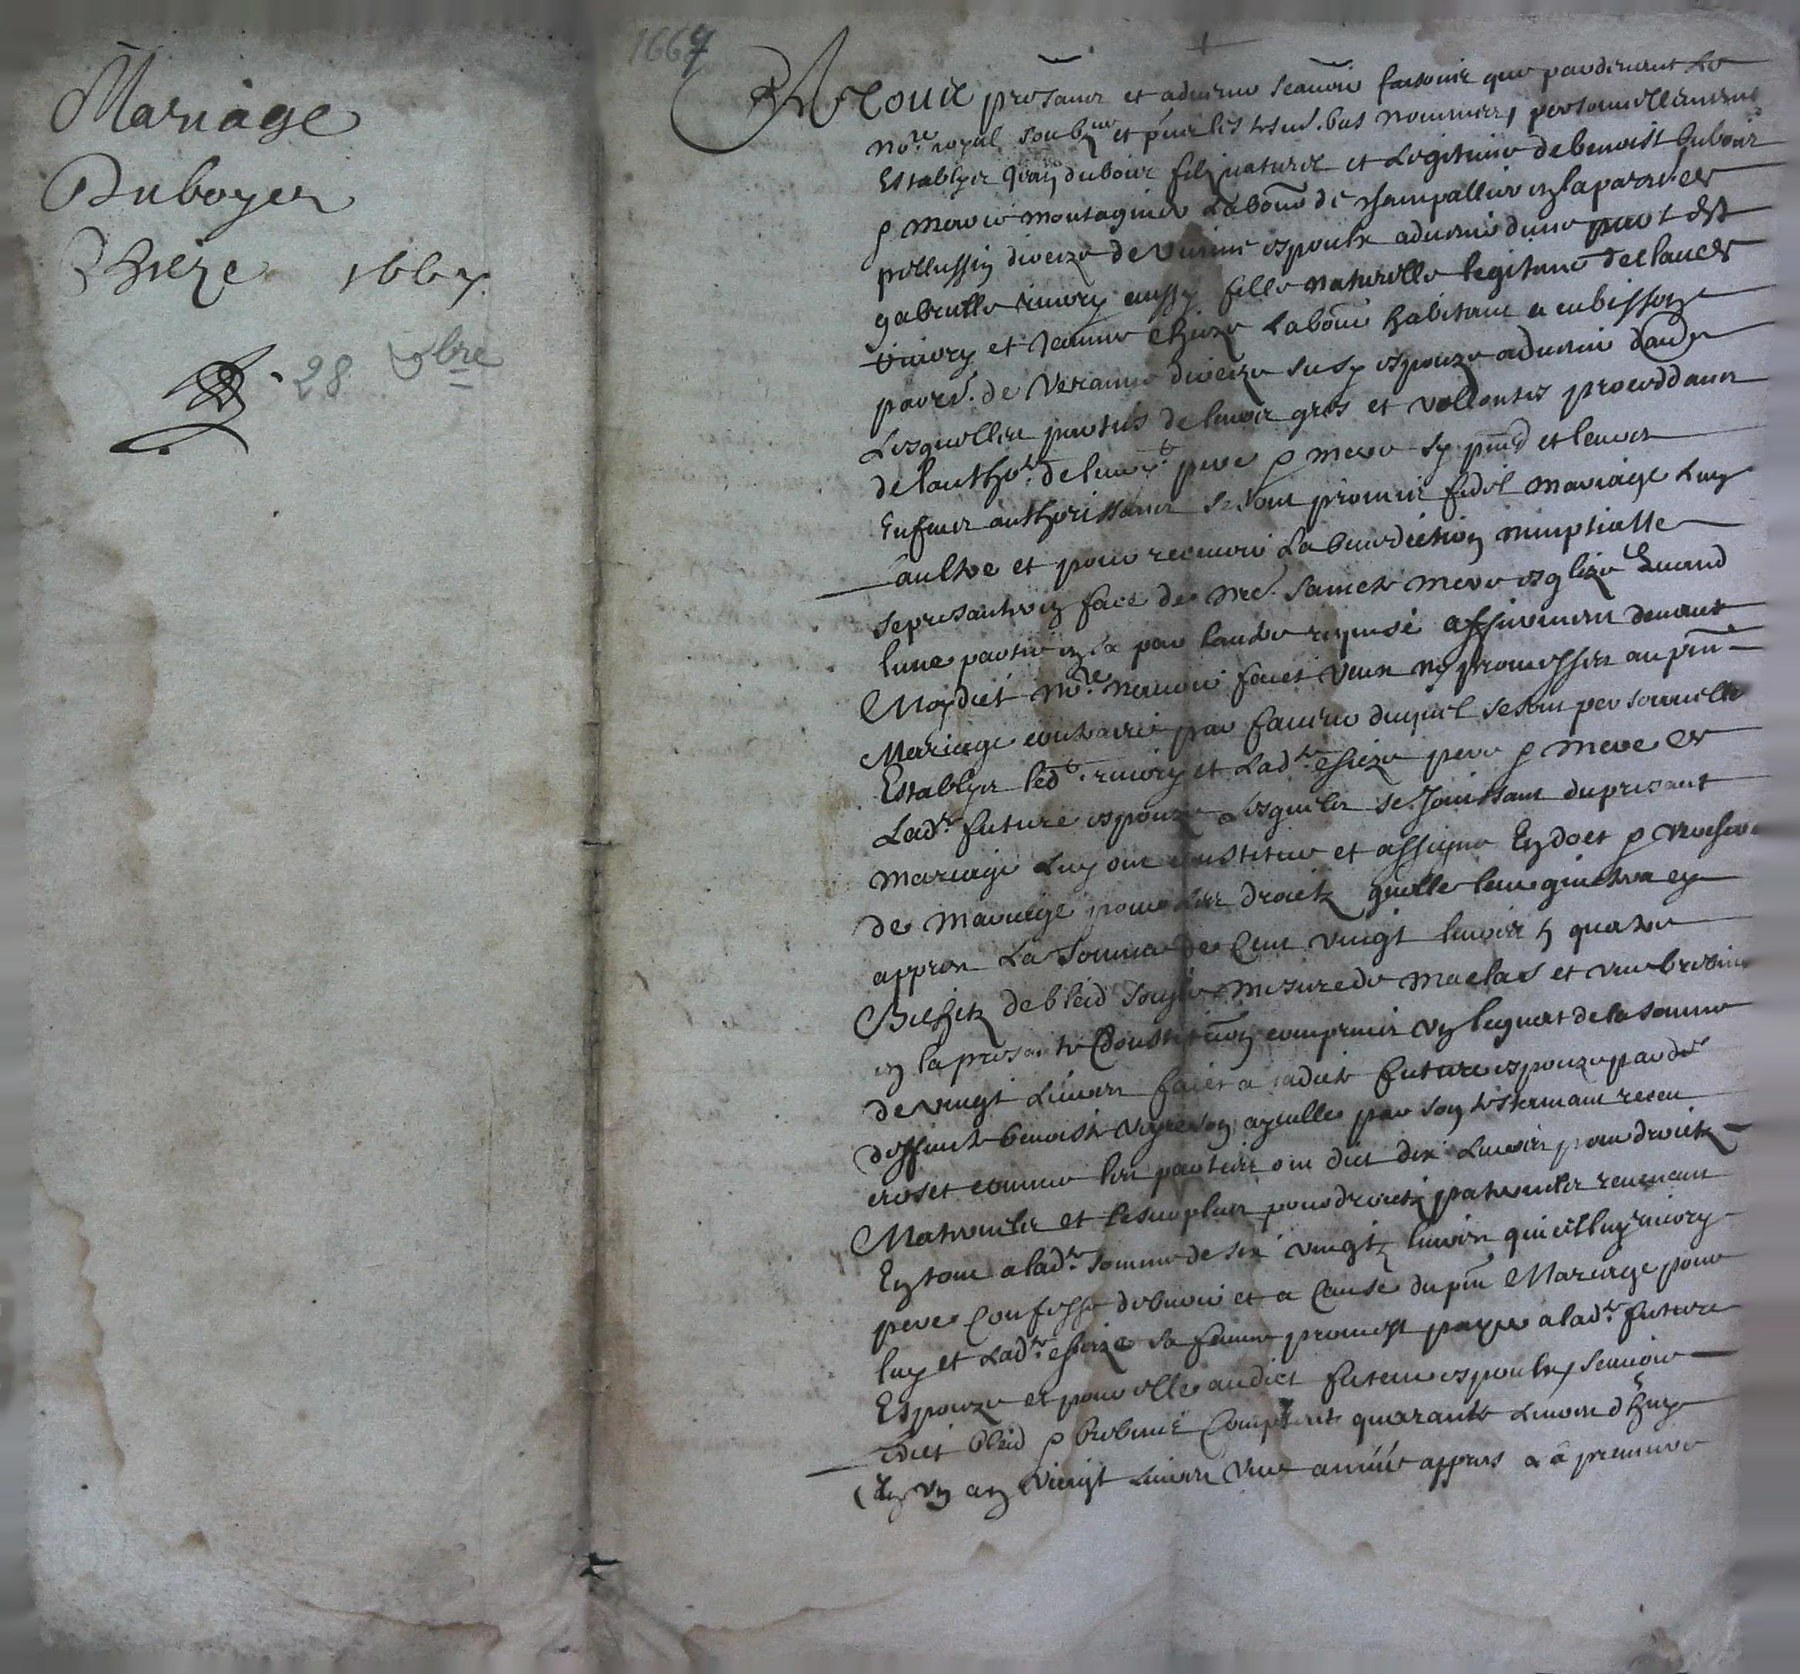 Mariage
Duboyer
Chieze 1667
28 9bre
1667
A tous presans et advenir scavoir faisons que pardevant le
No.re royal soubz.né et p̃nts les tesm. bas nommez, personnellement
Establys Jean dubois filz naturel et legitime de benoist dubois
& marie montagnier Labour̃ de champallier en la parr.
pellussin dioceze de vienne espoulx advenir d'une part Et
gabrielle rivory aussy fille naturelle legitime de claude
rivory et Jeanne Chieze Labour̃ habitant a cubisson
parr. de Veranne dioceze susd espouze advenir d'autre
Lesquelles parties de leurs gres et vollontes proceddans
de lauthor. de leursd. pere & mere sy p̃nts et leurs
Enfans authorisans se sont promis fidel mariage Luy
a aultre et pour recevoir La benediction nuptialle
se presanter en face de n.re saincte mere esglize quand
lune partie sera par lautre requise affirment devant
Moydict No.re n'avoir faict veux ny promesses au p̃nt
Mariage contraire par faveur duquel se sont personnelle
Establys led. rivory et Lad.te chieze pere & mere de
Lad.te future espouze lesquels se Jouissant du presant
mariage Luy ont constitue et assigne En doct & verchere
de mariage pour les droictz quelle leur quictera cy
appres La somme de Cent vingt livres & quatre
Bichetz de bled seigle mesure de maclas et une brebis
en la presante Constitution compris un legat de la somme
de vingt livres faict a ladicte future espouze par
deffunct benoist son ayeulle par son testemant receu
croset comme les parties ont dict dix livres pour droictz
Maternels et le surplus pour droictz paternels revenant
En tout a lad.te somme de six vingtz livres que led rivory
pere Confesse debvoir et a Cause du p̃nt Mariage pour
luy et Lad.te chieze sa femme promest payer a lad.te future
Espouze et pour elle audict future espoulx, scavoir
Ledict bled & brebis Comptant quarante livres d'huy
En un an vingt livres une année appres & a premiere